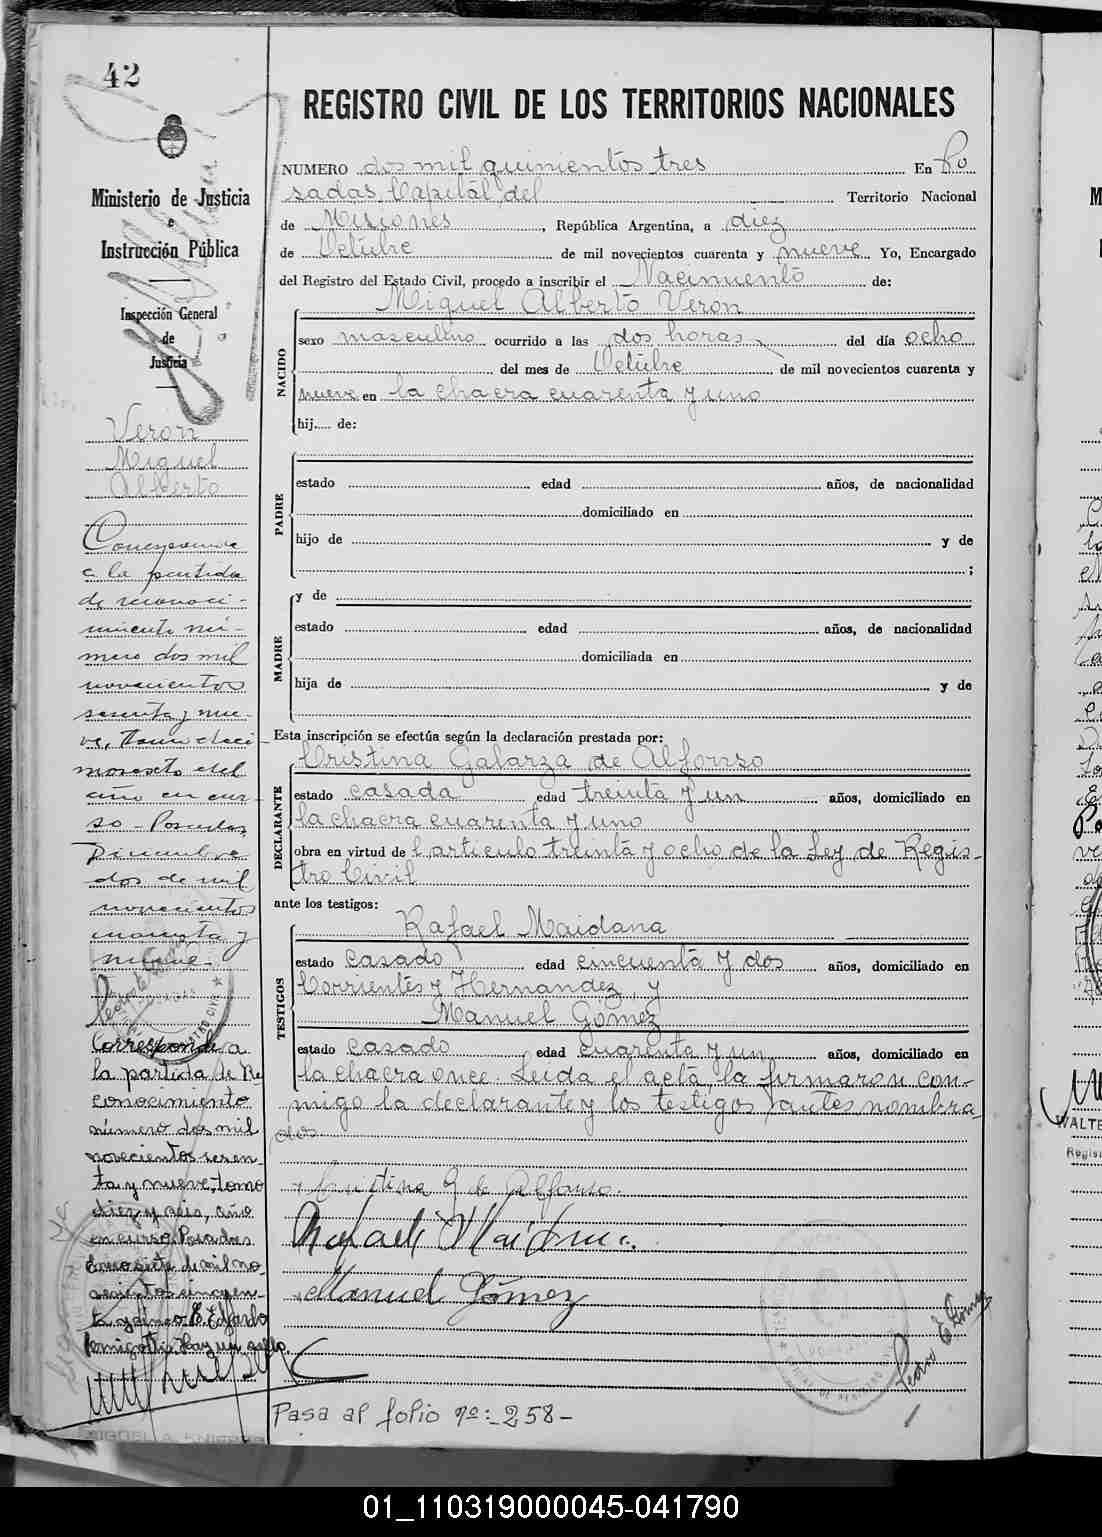 42
REGISTRO CIVIL DE LOS TERRITORIOS NACIONALES
Ministerio de Justicia
e
Instrucción Pública
Inspección General
de
Justicia
Veron
Miguel
Alberto
Corresponde
a la partida
de reconoci-
miento nú-
mero dos mil
novecientos
sesenta y nue-
ve, tomo deci
mosexto del
año en cur-
so - Posadas
Diciembre
dos de mil
novecientos
cuarenta y
nueve.-
Corresponde a
la partida de Re
conocimiento
número dos mil
novecientos sesen_
ta y nueve, tomo
diez y seis, año
en curso. Posadas
Enero siete de mil no_
vecientos cincuen-
ta y cinco. E. Edgardo
Hay un sello.
NUMERO dos mil quinientos tres En Po
sadas, Capital del Territorio Nacional
de Misiones, República Argentina, a diez
de Octubre de mil novecientos cuarenta y nueve. Yo, Encargado
del Registro del Estado Civil, procedo a inscribir el Nacimiento de:
Miguel Alberto Veron
NACIDO
sexo masculino ocurrido a las dos horas del día ocho
del mes de Octubre de mil novecientos cuarenta y
nueve en la chacra cuarenta y uno
hij.... de:
PADRE
estado edad años, de nacionalidad
domiciliado en
hijo de y de
;
MADRE
y de
estado edad años, de nacionalidad
domiciliada en
hija de y de
Esta inscripción se efectúa según la declaración prestada por:
Cristina Galarza de Alfonso
DECLARANTE
estado casada edad treinta y un años, domiciliado en
la chacra cuarenta y uno
obra en virtud de l'articulo treinta y ocho de la Ley de Regis-
tro Civil
ante los testigos:
Rafael Maidana
TESTIGOS
estado casado edad cincuenta y dos años, domiciliado en
Corrientes y Hernandez, y
Manuel Gómez
estado casado edad cuarenta y un años, domiciliado en
la chacra once. Leida el acta, la firmaron con-
migo la declarante y los testigos antes nombra
dos
Cristina G de Alfonso.
Rafael Maidana.
Manuel Gómez
Pedro E Gómez
Pasa al folio nº:-258-
01_110319000045-041790